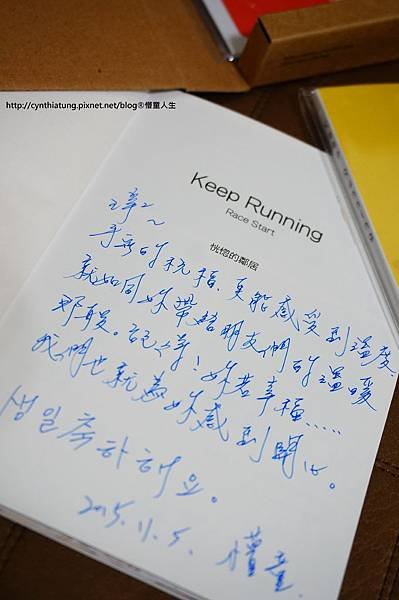 http://cynthiatung.pixnet.net/blog®僧童人生
Keep Running
Race Start
恍惚的鄰居
手寫的祝福,更能感受到溫度
就如同妳帶給朋友們的溫暖
那般。記得!妳若幸福.....
我們也就為妳感到開心。
생일축하해요。
2015.11.5.